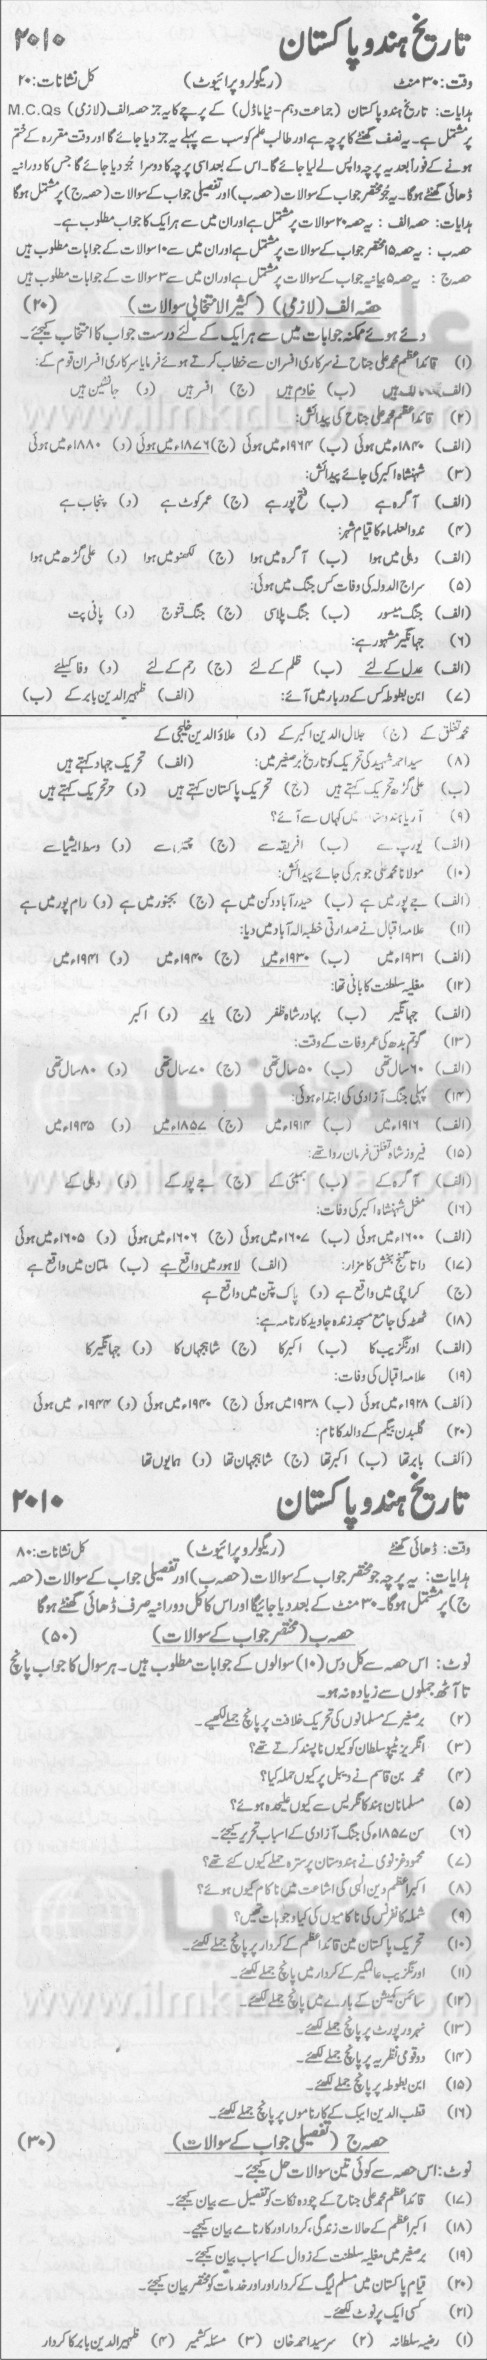 تاریخ ہندو پاکستان ۲۰۱۰
وقت: ۳۰ منٹ (ریگولر و پرائیوٹ) کل نشانات: ۲۰
ہدایات: تاریخ ہندو پاکستان (جماعت دہم۔نیا ماڈل) کے پرچے کا یہ جز حصہ الف (لازمی) M.C.Qs
پر مشتمل ہے۔ یہ نصف گھنٹے کا پرچہ ہے اور طالب علم کو سب سے پہلے یہ جز دیا جائے گا اور وقت مقررہ کے ختم
ہونے کے فوراً بعد یہ پرچہ واپس لے لیا جائے گا۔ اس کے بعد اسی پرچہ کا دوسرا جُز دیا جائے گا جس کا دورانیہ
ڈھائی گھنٹے ہوگا۔ یہ جُز مختصر جواب کے سوالات (حصہ ب) اور تفصیلی جواب کے سوالات (حصہ ج) پر مشتمل ہوگا
ہدایات: حصہ الف: یہ حصہ ۲۰ سوالات پر مشتمل ہے اور ان میں سے ہر ایک کا جواب مطلوب ہے۔
حصہ ب: یہ حصہ ۱۵ مختصر جواب کے سوالات پر مشتمل ہے اور ان میں سے ۱۰ سوالات کے جوابات مطلوب ہیں
حصہ ج: یہ حصہ ۵ بیانیہ جواب کے سوالات پر مشتمل ہے اور ان میں سے ۳ سوالات کے جوابات مطلوب ہیں
حصہ الف (لازمی) (کثیر الانتخابی سوالات) (۲۰)
دئے ہوئے ممکنہ جوابات میں سے ہر ایک کے لئے درست جواب کا انتخاب کیجئے۔
(۱) قائد اعظم محمد علی جناح نے سرکاری افسران سے خطاب کرتے ہوئے فرمایا سرکاری افسران قوم کے:
(الف) ہیں (ب) خادم ہیں (ج) افسر ہیں (د) جانشین ہیں
(۲) قائد اعظم محمد علی جناح کی پیدائش:
(الف) ۱۸۴۰ء میں ہوئی (ب) ۱۹۶۴ء میں ہوئی (ج) ۱۸۷۶ء میں ہوئی (د) ۱۸۸۰ء میں ہوئی
(۳) شہنشاہ اکبر کی جائے پیدائش:
(الف) آگرہ ہے (ب) فتح پور ہے (ج) عمر کوٹ ہے (د) پنجاب ہے
(۴) ندوالعلماء کا قیام شہر:
(الف) دہلی میں ہوا (ب) آگرہ میں ہوا (ج) لکھنو میں ہوا (د) علی گڑھ میں ہوا
(۵) سراج الدولہ کی وفات کس جنگ میں ہوئی:
(الف) جنگ میسور (ب) جنگ پلاسی (ج) جنگ قنوج (د) پانی پت
(۶) جہانگیر مشہور ہے:
(الف) عدل کے لئے (ب) ظلم کے لئے (ج) رحم کے لئے (د) وفا کیلئے
(۷) ابن بطوطہ کس کے دربار میں آئے: (الف) ظہیر الدین بابر کے (ب)
محمد تغلق کے (ج) جلال الدین اکبر کے (د) علاؤ الدین خلیجی کے
(۸) سید احمد شہید کی تحریک کو تاریخ برصغیر میں: (الف) تحریک جہاد کہتے ہیں
(ب) علی گڑھ تحریک کہتے ہیں (ج) تحریک پاکستان کہتے ہیں (د) حر تحریک کہتے ہیں
(۹) آریا ہندوستان میں کہاں سے آئے؟
(الف) یورپ سے (ب) افریقہ سے (ج) چین سے (د) وسط ایشیا سے
(۱۰) مولانا محمد علی جوہر کی جائے پیدائش:
(الف) جے پور میں ہے (ب) حیدرآباد دکن میں ہے (ج) بجنور میں ہے (د) رام پور میں ہے
(۱۱) علامہ اقبال نے صدارتی خطبہ الہ آباد میں دیا:
(الف) ۱۹۳۱ء میں (ب) ۱۹۳۰ء میں (ج) ۱۹۴۰ء میں (د) ۱۹۴۱ء میں
(۱۲) مغلیہ سلطنت کا بانی تھا:
(الف) جہانگیر (ب) بہادر شاہ ظفر (ج) بابر (د) اکبر
(۱۳) گوتم بدھ کی عمر وفات کے وقت:
(الف) ۶۰ سال تھی (ب) ۵۰ سال تھی (ج) ۷۰ سال تھی (د) ۸۰ سال تھی
(۱۴) پہلی جنگ آزادی کی ابتداء ہوئی:
(الف) ۱۹۱۶ء میں (ب) ۱۹۱۴ء میں (ج) ۱۸۵۷ء میں (د) ۱۹۴۵ء میں
(۱۵) فیروز شاہ تغلق فرمان روا تھے:
(الف) آگرہ کے (ب) بمبئی کے (ج) جے پور کے (د) دہلی کے
(۱۶) مغل شہنشاہ اکبر کی وفات:
(الف) ۱۶۰۰ء میں ہوئی (ب) ۱۶۰۷ء میں ہوئی (ج) ۱۶۰۶ء میں ہوئی (د) ۱۶۰۵ء میں ہوئی
(۱۷) داتا گنج بخش کا مزار: (الف) لاہور میں واقع ہے (ب) ملتان میں واقع ہے
(ج) کراچی میں واقع ہے (د) پاک پتن میں واقع ہے
(۱۸) ٹھٹہ کی جامع مسجد زندہ جاوید کارنامہ ہے:
(الف) اورنگزیب کا (ب) اکبر کا (ج) شاہجہاں کا (د) جہانگیر کا
(۱۹) علامہ اقبال کی وفات:
(الف) ۱۹۲۸ء میں ہوئی (ب) ۱۹۳۸ء میں ہوئی (ج) ۱۹۴۰ء میں ہوئی (د) ۱۹۴۴ء میں ہوئی
(۲۰) گلبدن بیگم کے والد کا نام:
(الف) بابر تھا (ب) اکبر تھا (ج) شاہجہان تھا (د) ہمایوں تھا
تاریخ ہندو پاکستان ۲۰۱۰
وقت: ڈھائی گھنٹے (ریگولر و پرائیوٹ) کل نشانات: ۸۰
ہدایات: یہ پرچہ جو مختصر جواب کے سوالات (حصہ ب) اور تفصیلی جواب کے سوالات (حصہ
ج) پر مشتمل ہوگا۔ ۳۰ منٹ کے بعد دیا جائیگا اور اس کا کل دورانیہ صرف ڈھائی گھنٹے ہوگا
حصہ ب (مختصر جواب کے سوالات) (۵۰)
نوٹ: اس حصہ سے کل دس (۱۰) سوالوں کے جوابات مطلوب ہیں۔ ہر سوال کا جواب پانچ
تا آٹھ جملوں سے زیادہ نہ ہو۔
(۲) برصغیر کے مسلمانوں کی تحریک خلافت پر پانچ جملے لکھیے۔
(۳) انگریز ٹیپو سلطان کو کیوں ناپسند کرتے تھے؟
(۴) محمد بن قاسم نے دیبل پر کیوں حملہ کیا؟
(۵) مسلمانان ہند کانگریس سے کیوں علیحدہ ہوئے؟
(۶) سن ۱۸۵۷ء کی جنگ آزادی کے اسباب تحریر کیجئے۔
(۷) محمود غزنوی نے ہندوستان پر سترہ حملے کیوں کئے تھے؟
(۸) اکبر اعظم دین الہی کی اشاعت میں ناکام کیوں ہوئے؟
(۹) شملہ کانفرنس کی ناکامیوں کی کیا وجوہات تھیں؟
(۱۰) تحریک پاکستان میں قائد اعظم کے کردار پر پانچ جملے لکھئے۔
(۱۱) اورنگزیب عالمگیر کے کردار میں پانچ جملے لکھئے۔
(۱۲) سائمن کمیشن کے بارے میں پانچ جملے لکھئے۔
(۱۳) نہرو رپورٹ پر پانچ جملے لکھئے۔
(۱۴) دو قومی نظریہ پر پانچ جملے لکھئے۔
(۱۵) ابن بطوطہ پر پانچ جملے لکھئے۔
(۱۶) قطب الدین ایبک کے کارناموں پر پانچ جملے لکھئے۔
حصہ ج (تفصیلی جواب کے سوالات) (۳۰)
نوٹ: اس حصہ سے کوئی تین سوالات حل کیجئے۔
(۱۷) قائد اعظم محمد علی جناح کے چودہ نکات کو تفصیل سے بیان کیجئے۔
(۱۸) اکبر اعظم کے حالات زندگی، کردار اور کارنامے بیان کیجیے۔
(۱۹) برصغیر میں مغلیہ سلطنت کے زوال کے اسباب بیان کیجئے۔
(۲۰) قیام پاکستان میں مسلم لیگ کے کردار اور اور خدمات کو مختصر بیان کیجئے۔
(۲۱) کسی ایک پر نوٹ لکھئے۔
(۱) رضیہ سلطانہ (۲) سر سید احمد خان (۳) مسئلہ کشمیر (۴) ظہیر الدین بابر کا کردار